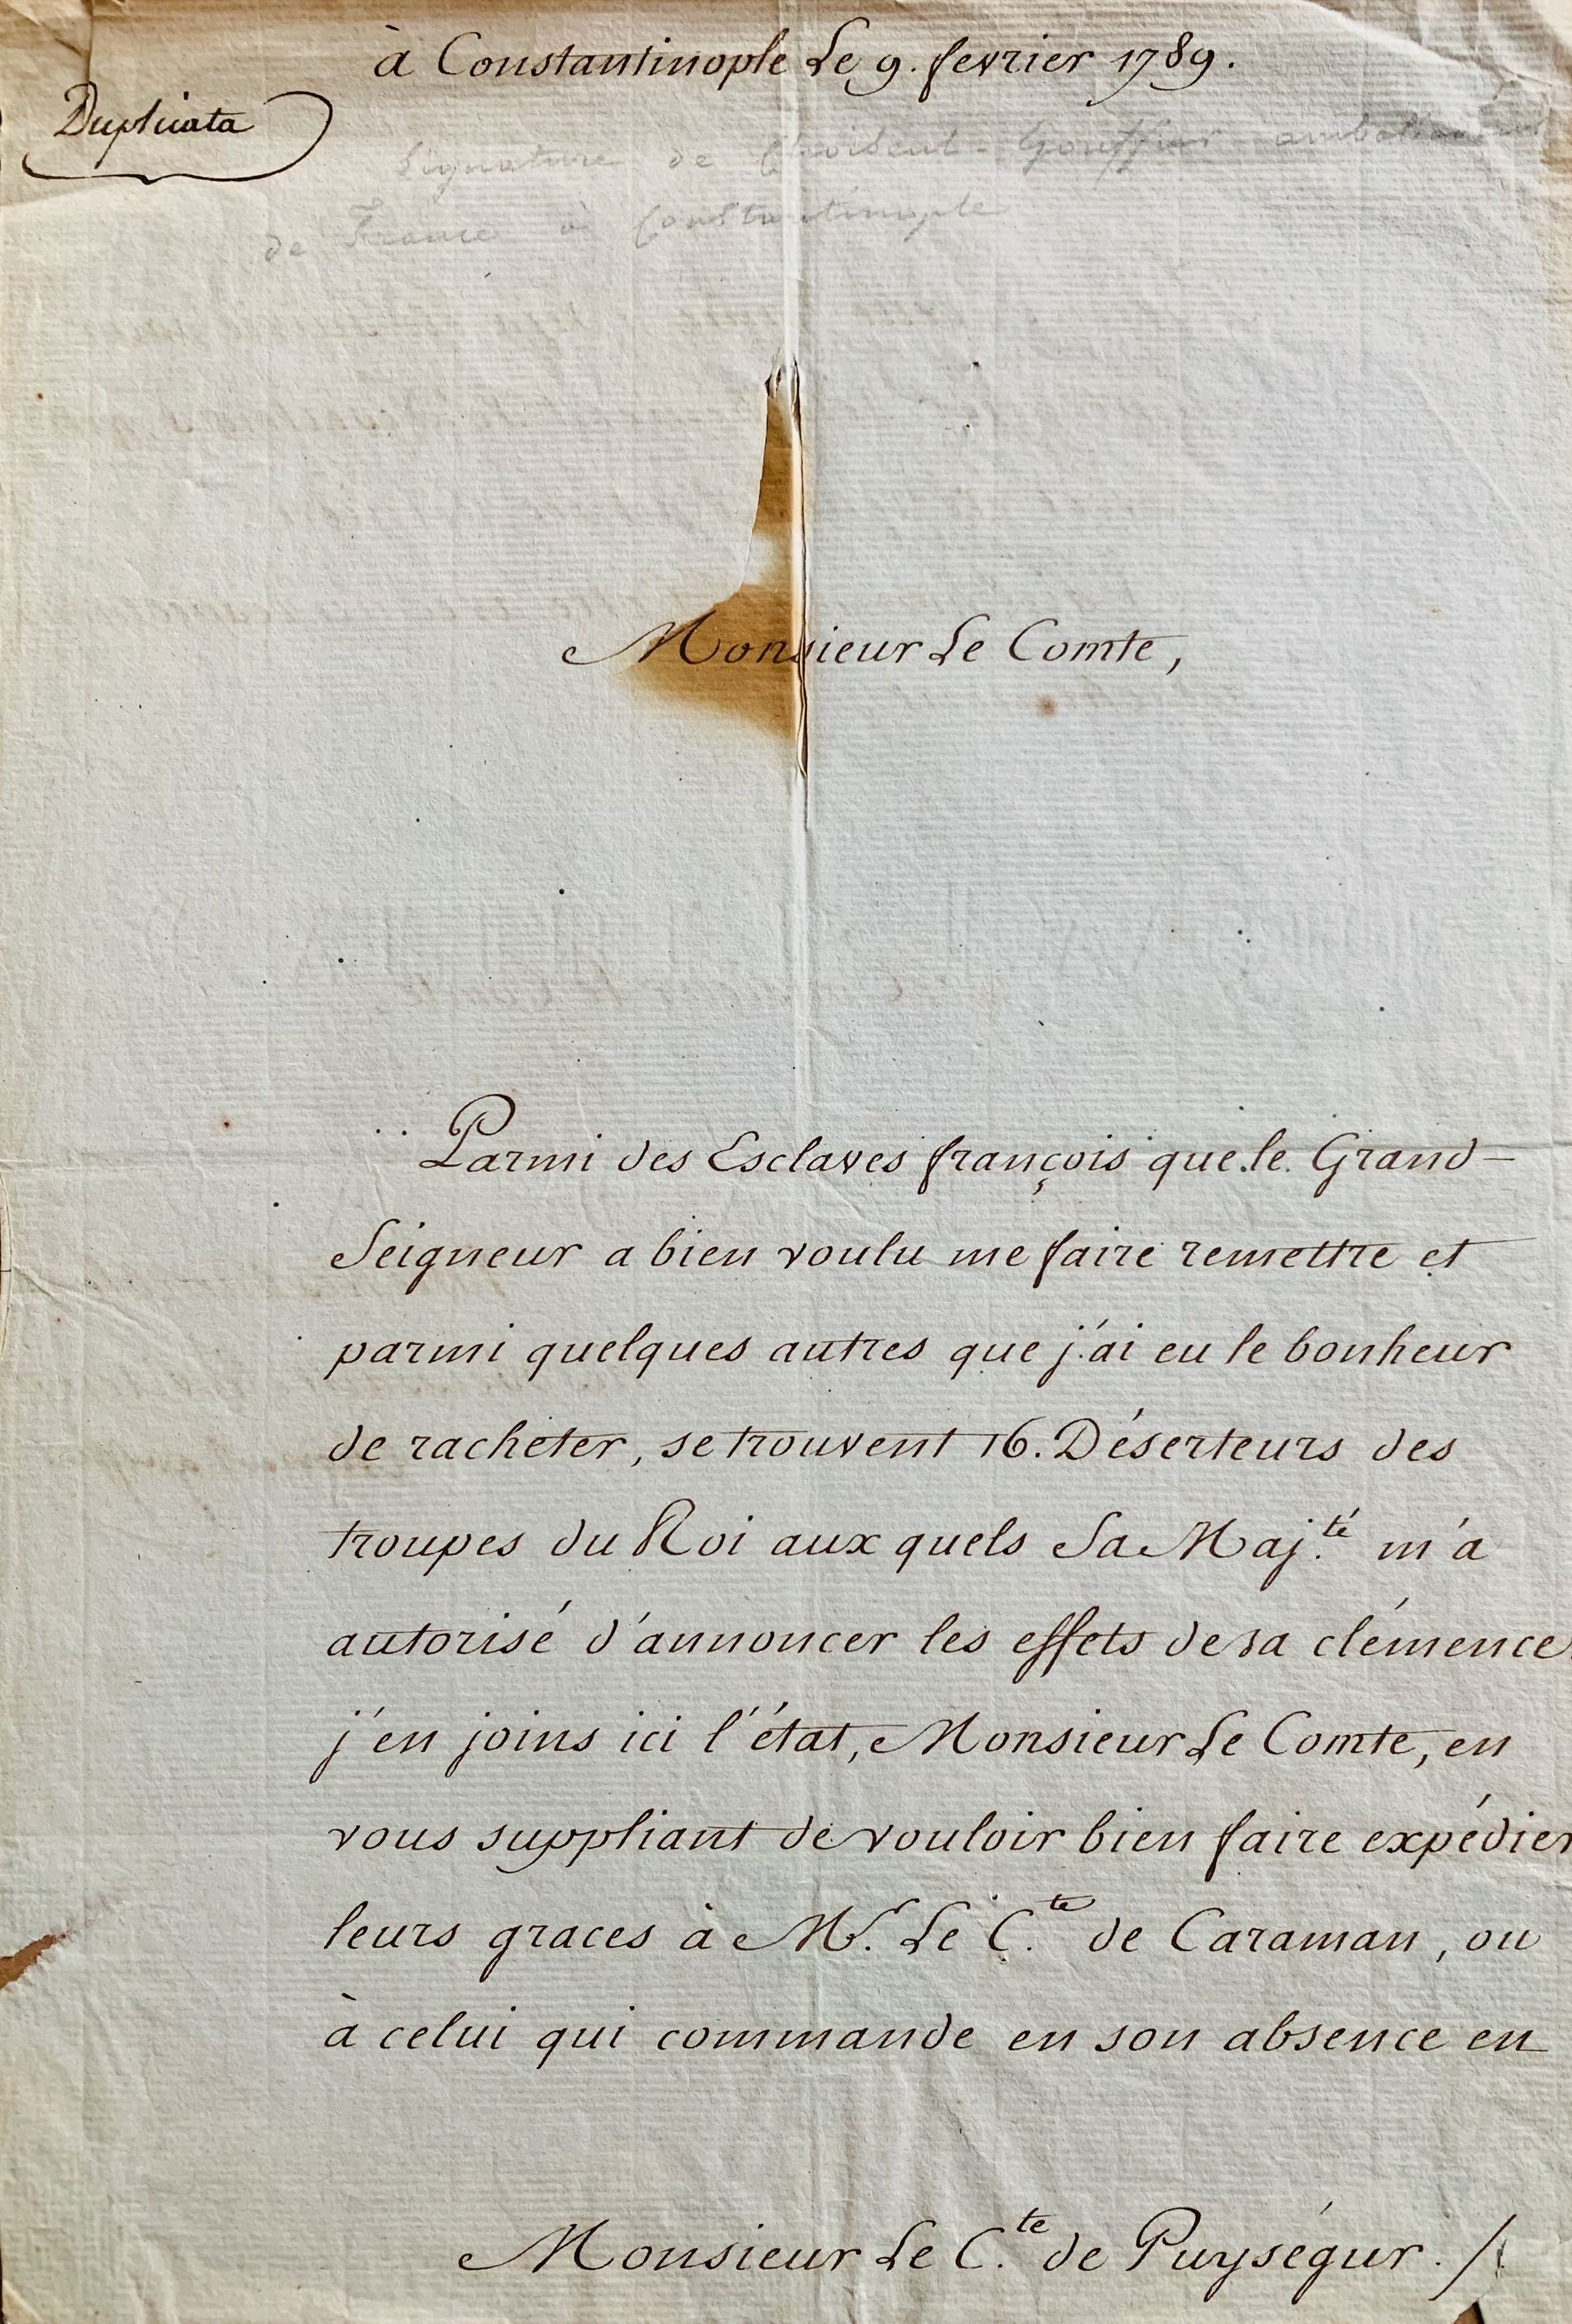 à Constantinople Le 9. fevrier 1789.
Duplicata
Signature de Choiseul-Gouffier ambassadeur
de France à Constantinople
Monsieur Le Comte,
Parmi des Esclaves françois que le Grand-
Seigneur a bien voulu me faire remettre et
parmi quelques autres que j'ai eu le bonheur
de racheter, se trouvent 16. Déserteurs des
troupes du Roi aux quels Sa Maj.té m'a
autorisé d'annoncer les effets de sa clémence.
j'en joins ici l'état, Monsieur Le Comte, en
vous suppliant de vouloir bien faire expédier
leurs graces à Mr. Le C.te de Caraman, ou
à celui qui commande en son absence en
Monsieur Le C.te de Puységur. /